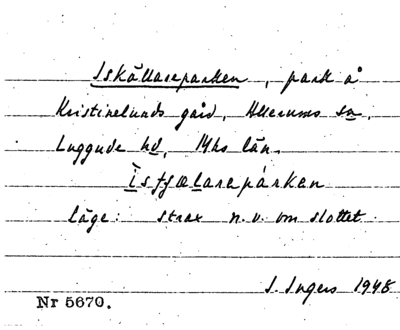 Iskällareparken, park å
Kristinelunds gård, Allerums sn,
Luggude hd, Mhs län.
ìsfjælarepárken
läge: strax n.v. om slottet.
I. Ingers 1948
Nr 5670.